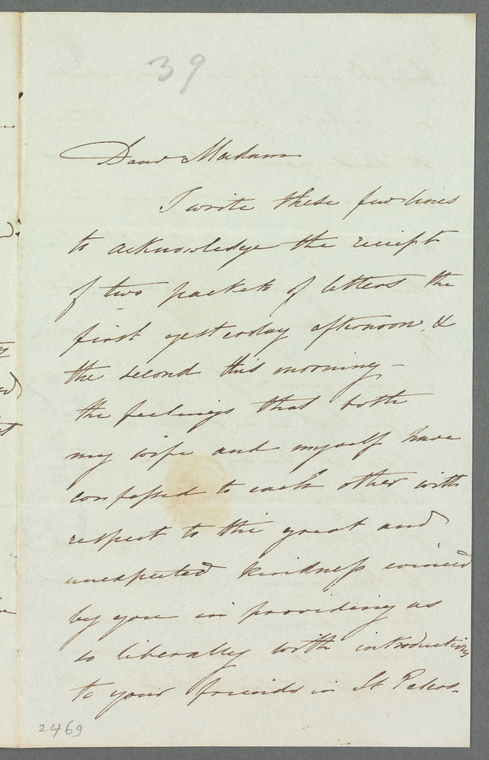 39
Dear Madam
I write these few lines
to acknowledge the reciept
of two packets of letters the
first yesterday afternoon, &
the second this morning –
the feelings that both
my wife and myself have
confessed to each other with
respect to the great and
unexpected kindness evinced
by you in providing us
so liberally with introductions
to your friends in St Peters-
2469